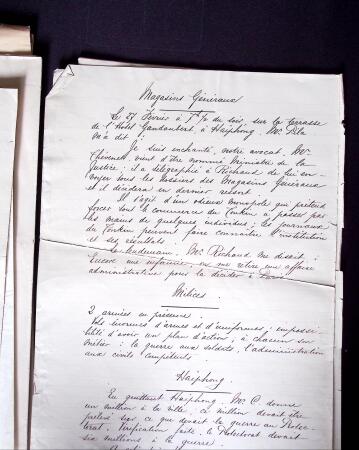 Magasins Généraux
Le 27 Février à 7h 1/2 du soir, sur la terrasse
de l'Hotel Gandaubert à Haiphong, Mr Pila
m'a dit :
Je suis enchanté, notre avocat, Mr
Thévenet, vient d'être nommé Ministre de la
Justice ; il a télégraphié à Richaud de lui en-
voyer tous les dossiers des Magasins Généraux
et il décidera en dernier ressort.
Il s'agit d'un odieux monopole qui prétend
forcer tout le commerce du Tonkin à passer par
les mains de quelques individus ; les journaux
du Tonkin peuvent faire connaître l'institution
et ses résultats.
Le lendemain, Mr Richaud me disait :
Encore une on me retire une affaire
administrative pour la décider à
Milices :
2 armées en présence :
Vols énormes d'armes et d'uniformes ; impossi-
bilité d'avoir un plan d'action ; à chacun son
métier : la guerre aux soldats, l'administration
aux civils compétents.
Haiphong :
En quittant Haiphong, Mr C. donne
un million à la ville, ce million devait être
prélevé sur ce que devait la guerre au Protec-
torat. Vérification faite, le Protectorat devait
six millions à la guerre.